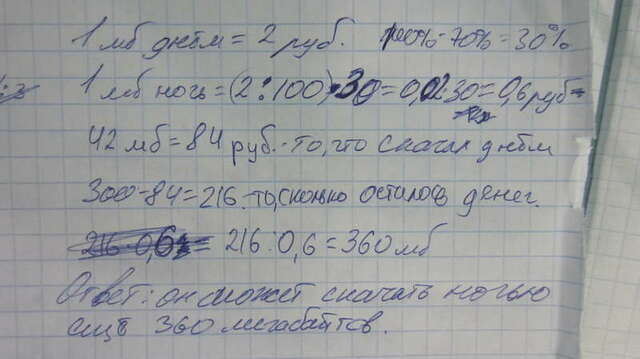 1 мб днём = 2 руб. 100%-70%=30%
1 мб ночь = (2:100)·30=0,02·30=0,6 руб
42 мб = 84 руб.-то, что скачал днём
300-84=216.-то, сколько осталось денег.
216:0,6=360 мб
Ответ: он сможет скачать ночью
ещё 360 мегабайтов.